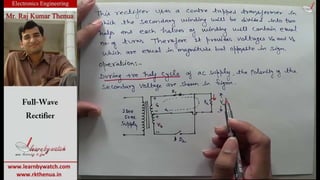 Electronics Engineering
Mr. Raj Kumar Thenua
Full-Wave
Rectifier
Learnbywatch
.com
www.learnbywatch.com
www.rkthenua.in
This rectifier uses a centre tapped transformer in
which the secondary winding will be divided into two
halfs and each halves of winding will contain equal
no. of turns. Therefore it provides voltages Va and Vb
which are equal in magnitude but opposite in sign.
operation:-
During +ve half cycle of AC supply the polarity of the
secondary voltage are shown in figure.
supply
D2